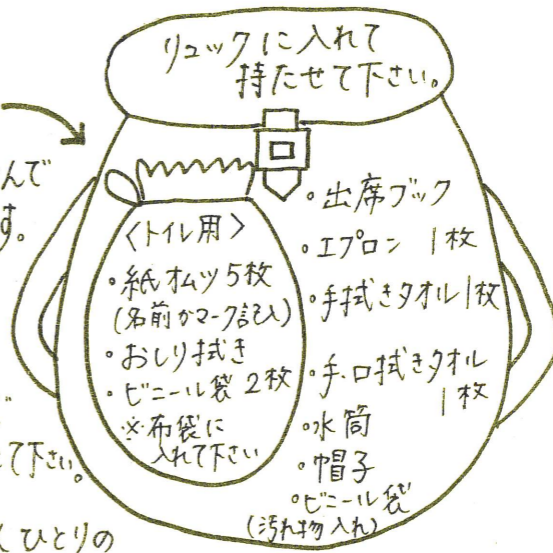 リュックに入れて
持たせて下さい。
んで
す。
<トイレ用>
・紙オムツ5枚
(名前かマーク記入)
・おしり拭き
・ビニール袋 2枚
※布袋に
入れて下さい
・出席ブック
・エプロン 1枚
・手拭きタオル1枚
・手、口拭きタオル
1枚
・水筒
・帽子
・ビニール袋
(汚れ物入れ)
て下さい。
ひとりの